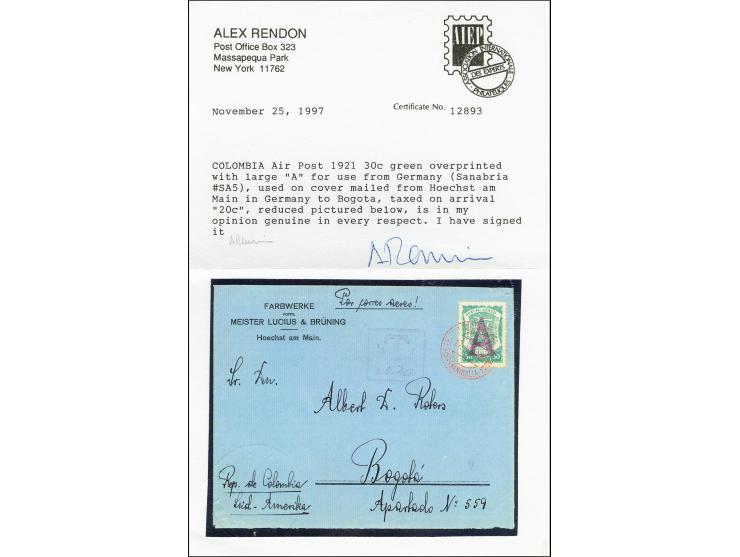 ALEX RENDON
Post Office Box 323
Massapequa Park
New York 11762
AIEP
ASSOCIATION INTERNATIONALE
DES EXPERTS
PHILATELIQUES
November 25, 1997
Certificate No. 12893
COLOMBIA Air Post 1921 30c green overprinted
with large "A" for use from Germany (Sanabria
#SA5), used on cover mailed from Hoechst am
Main in Germany to Bogota, taxed on arrival
"20c", reduced pictured below, is in my
opinion genuine in every respect. I have signed
it
FARBWERKE
vorm.
MEISTER LUCIUS & BRÜNING
Hoechst am Main.
Por correo aereo!
A
30
T
Albert E. Roters
Bogotá
Apartado No 559
Rep. de Colombia
Süd-Amerika